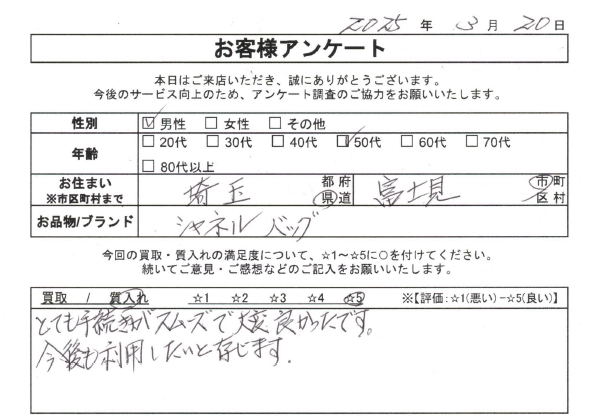 2025年 3月 20日
お客様アンケート
本日はご来店いただき、誠にありがとうございます。
今後のサービス向上のため、アンケート調査のご協力をお願いいたします。
性別 ☑男性 □女性 □その他
年齢 □20代 □30代 □40代 ☑50代 □60代 □70代
□80代以上
お住まい ※市区町村まで 埼玉 都府県道 富士見 市町区村
お品物/ブランド シャネル バッグ
今回の買取・質入れの満足度について、☆1～☆5に○を付けてください。
続いてご意見・ご感想などのご記入をお願いいたします。
買取 / 質入れ ☆1 ☆2 ☆3 ☆4 ☆5 ※【評価:☆1(悪い)－☆5(良い)】
とても手続きがスムーズで大変良かったです。
今後も利用したいと存じます.